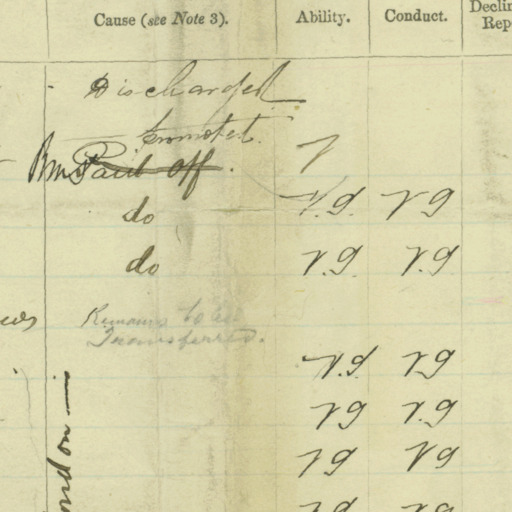 Cause (see Note 3). Ability. Conduct. Declin
Rep
Discharged
Promoted.
Paid off.
do V.g. V g
do V.g. V.g.
Remains to be
Transferred.
V.g V g
V g V.g
V g V g
V g V g
ondon —